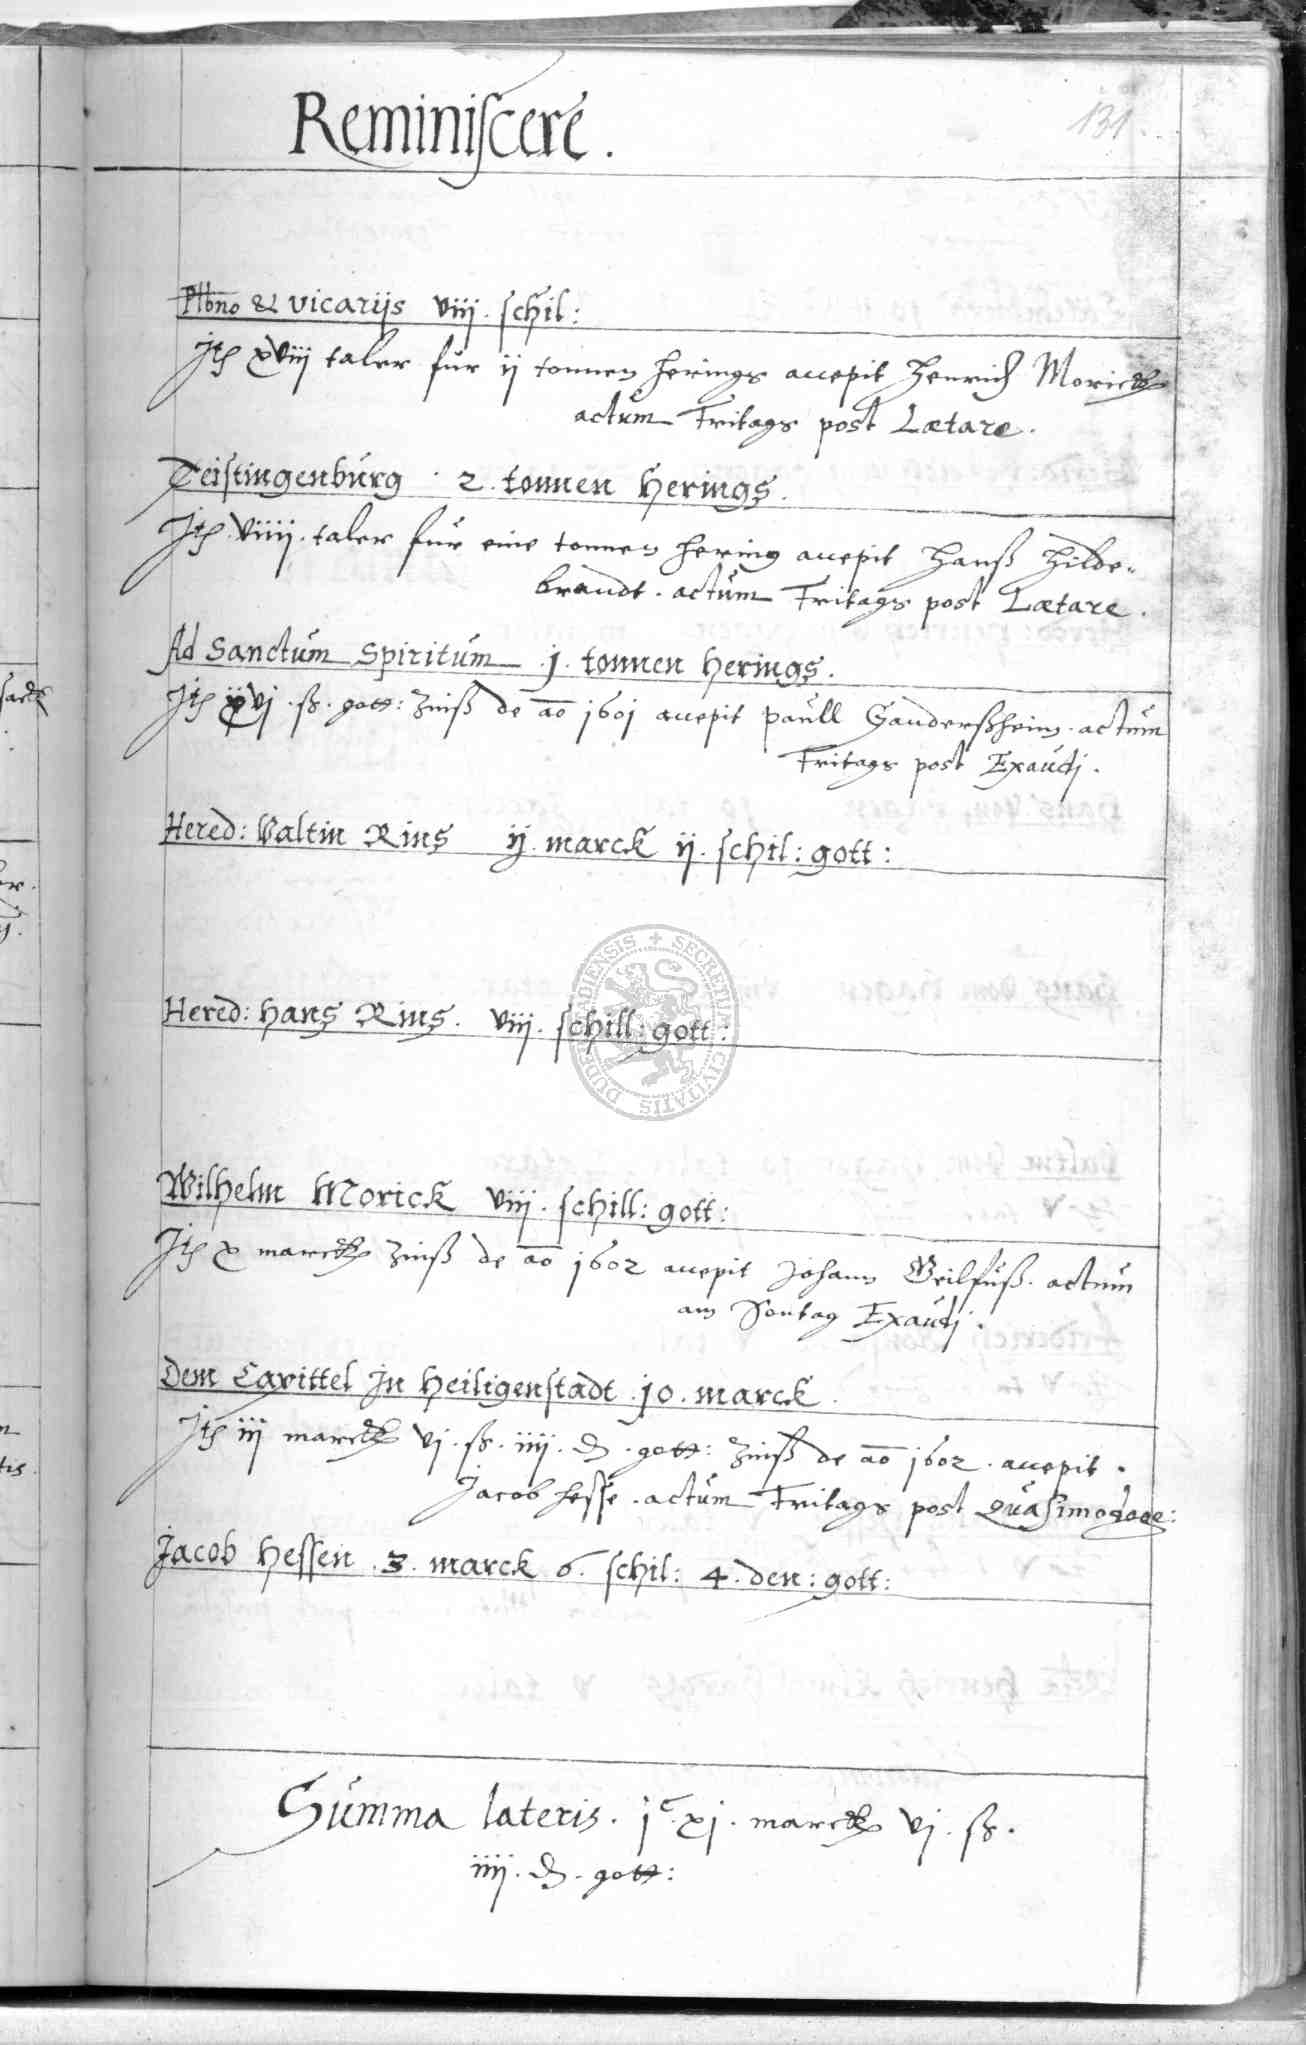 Reminiscere.
131
Plbno & vicarijs viij. schil:
Jtem xviij taler für ij tonnen herings accepit Henrich Morick
actum Fritags post Lætare.
Teistingenburg . 2. tonnen herings.
Jtem viiij. taler für eine tonnen hering accepit Hanß Hilde-
brandt. actum Fritags post Lætare.
Ad Sanctum Spiritum .j. tonnen herings.
Jtem xvj. ß. gott: Zinß de ao 1601 accepit Paull Ganderßheim. actum
Fritags post Exaudj.
Hered: Valtin Rins ij. marck ij. schil: gott:
Hered: hans Rins. viij. schill: gott:
Wilhelm Morick viij. schill: gott:
Jtem x marck Zinß de ao 1602 accepit Johann Geilfuß. actum
am Sontag Exaudj.
Dem Capittel Jn heiligenstadt .10. marck.
Jtem iij marck vj. ß. iiij. d. gott: Zinß de ao 1602. accepit.
Jacob Hesse. actum Fritags post Quasimodoge:
Jacob Hessen .3. marck 6. schil: 4. den: gott:
Summa lateris. jc. xj. marck vj. ß.
iiij. d. gott:
SECRETUM CIVITATIS DUDERSTADIENSIS